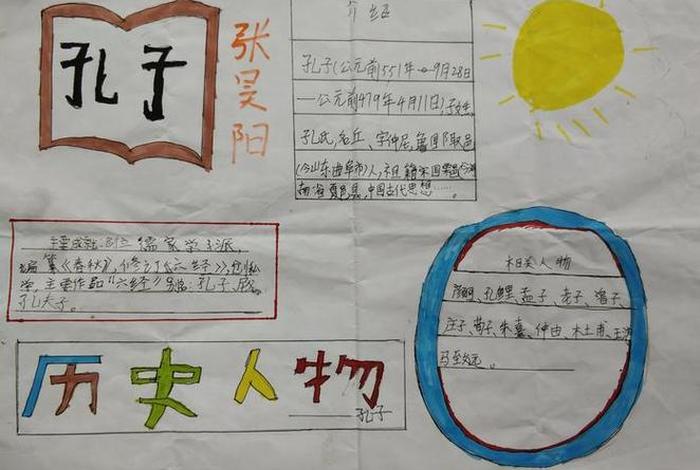 孔子
张昊阳
介绍
孔子(公元前551年 9月28日
—公元前479年4月11日),子姓,
孔氏,名丘、字仲尼,鲁国陬邑
(今山东曲阜市)人,祖籍宋国栗邑
夏邑县,中国古代思想……
主要成就:创立儒家学派,
编纂《春秋》,修订《六经》,
主要作品"六经" 别名:孔子,
孔夫子.
历史人物
孔子
相关人物
颜回、孔鲤、孟子、老子、曾子、
庄子、荀子、朱熹、仲由、
马致远。